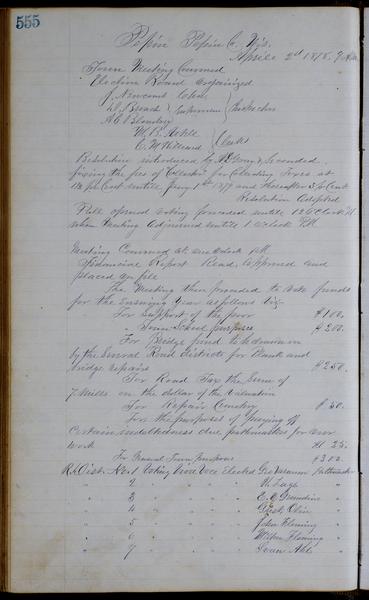 555
Pepin Pepin Co. Wis.
April 2nd 1878. 9 A.M.
Town Meeting Convened
Election Board organized
J. Newcomb
Inspectors
A C
Clerks
E. W.
Resolution introduced by & Seconded
fixing the fees of Collector for Collecting Taxes at
per Cent untill Jany 1st 1879 and thereafter 5 pr Cent
Resolution Adopted
Poll opened voting proceeded untill 12 O'Clock M
when Meeting Adjourned untill 1 o'clock P.M.
Meeting Convened at one o'clock P.M.
Financial Report Read, approved and
placed on file
The Meeting then proceeded to vote funds
for the Ensuing Year as follows viz-
For Support of the poor $100.
" Town School purposes $200.
" For Bridge fund to be drawn
by the Several Road districts for Plank and
bridge repairs $250.
For Road Tax the Sum of
7 Mills on the dollar of the Valuation
For Repair Cemetery $50.
For the purposes of paying off
Certain indebtedness due pathmasters for over
work $125.
For General Town purposes $300.
Rd. Dist. No 1 Voting Viva Voce Elected Pathmaster
" 2 " " " " "
" 3 " " " " E. C. "
" 4 " " " " "
" 5 " " " " John Fleming "
" 6 " " " " Fleming "
" 7 " " " " "